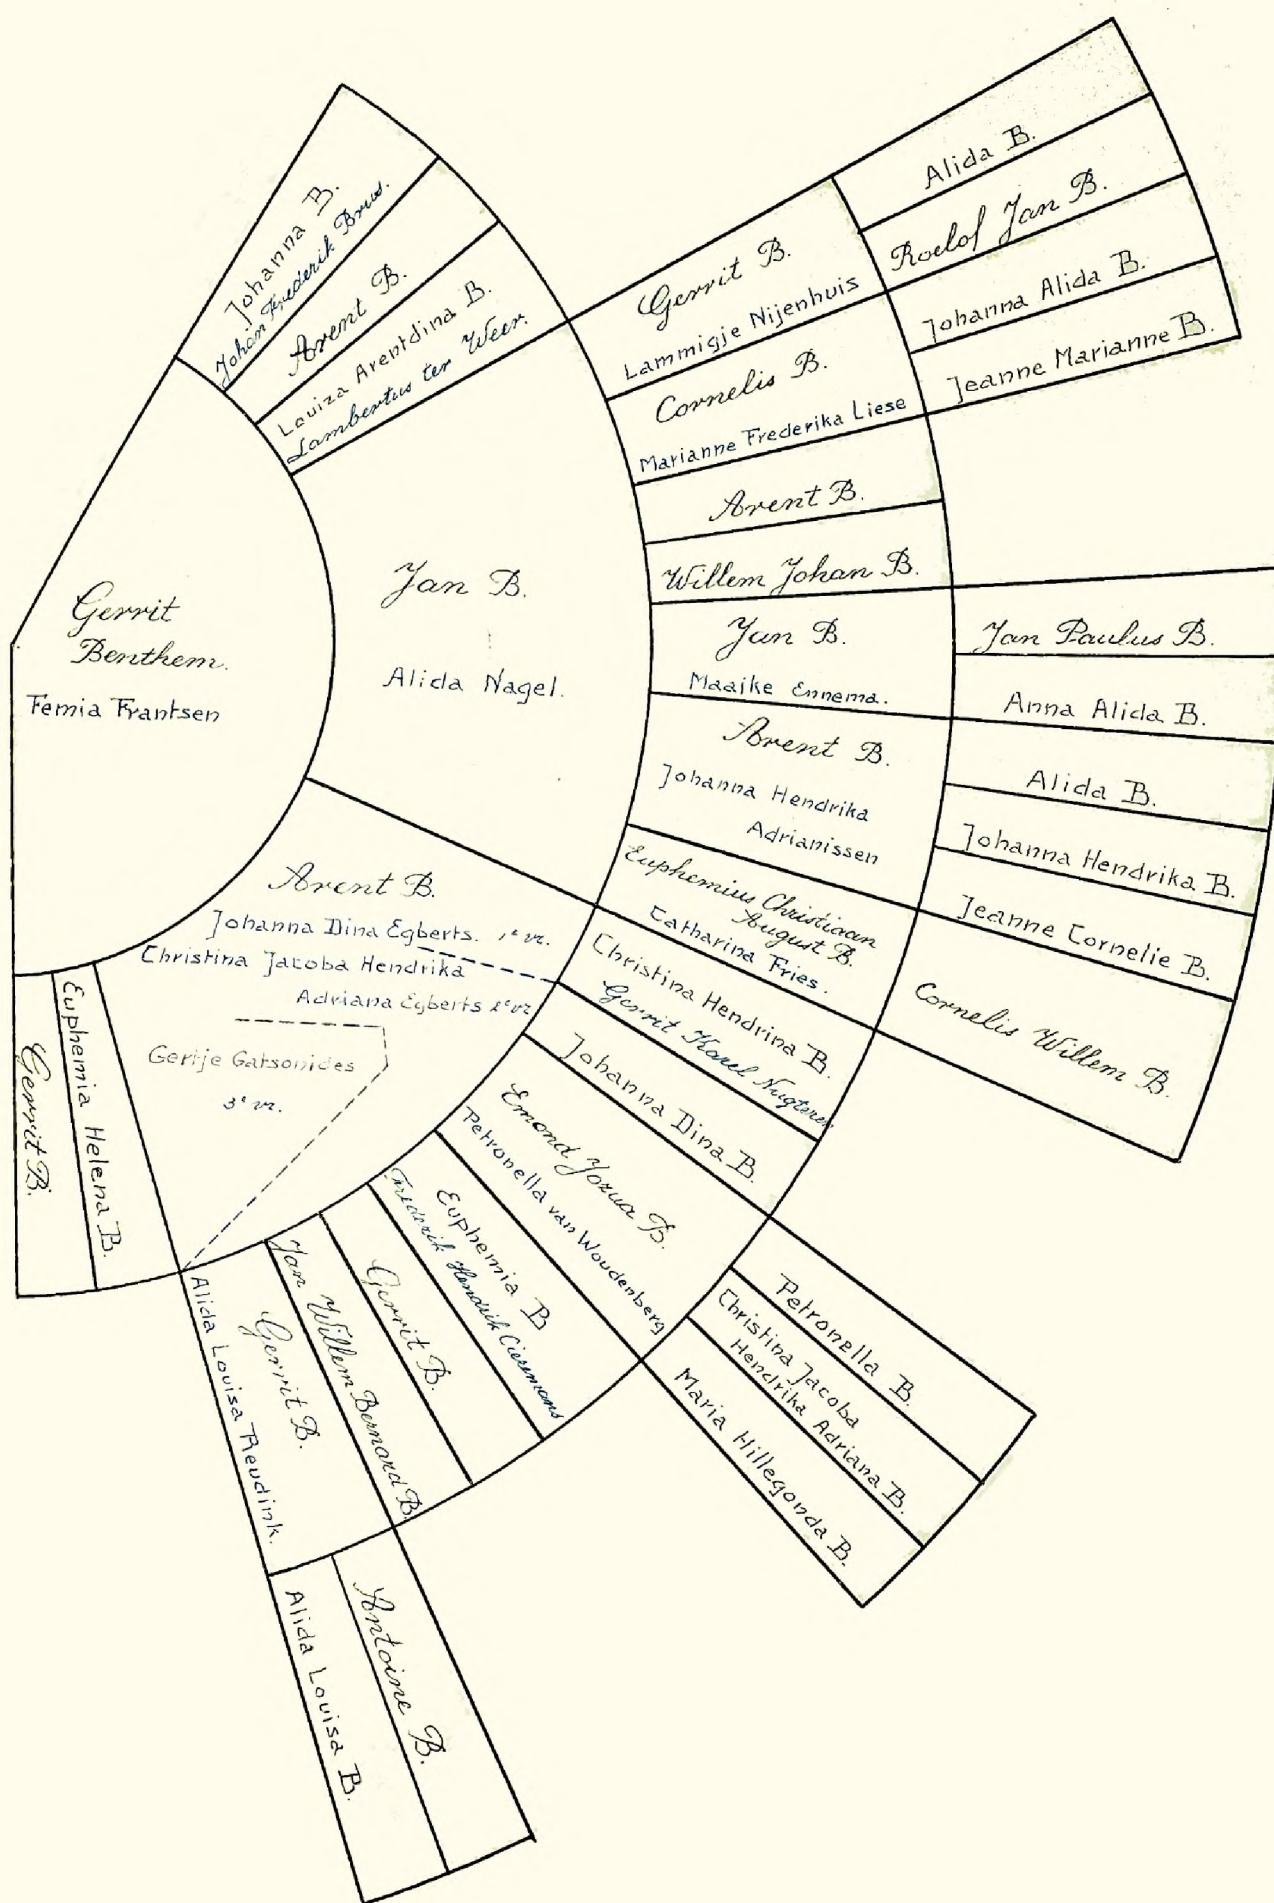 Gerrit
Benthem.
Femia Frantsen
Johanna B.
Johan Frederik Brus.
Arent B.
Louiza Arentdina B.
Lambertus ter Weer.
Jan B.
Alida Nagel.
Arent B.
Johanna Dina Egberts. 1e vr.
Christina Jacoba Hendrika
Adriana Egberts 2e vr.
Gertje Gatsonides
3e vr.
Euphemia Helena B.
Gerrit B.
Gerrit B.
Lammigje Nijenhuis
Cornelis B.
Marianne Frederika Liese
Arent B.
Willem Johan B.
Jan B.
Maaike Ennema.
Arent B.
Johanna Hendrika
Adrianissen
Euphemius Christiaan
August B.
Catharina Fries.
Christina Hendrina B.
Gerrit Karel Nugteren
Johanna Dina B.
Emond Jozua B.
Petronella van Woudenberg
Euphemia B
Frederik Hendrik Ciermans
Gerrit B.
Jan Willem Bernard B.
Gerrit B.
Alida Louisa Reudink.
Alida B.
Roelof Jan B.
Johanna Alida B.
Jeanne Marianne B.
Jan Paulus B.
Anna Alida B.
Alida B.
Johanna Hendrika B.
Jeanne Cornelie B.
Cornelis Willem B.
Petronella B.
Christina Jacoba
Hendrika Adriana B.
Maria Hillegonda B.
Antoine B.
Alida Louisa B.